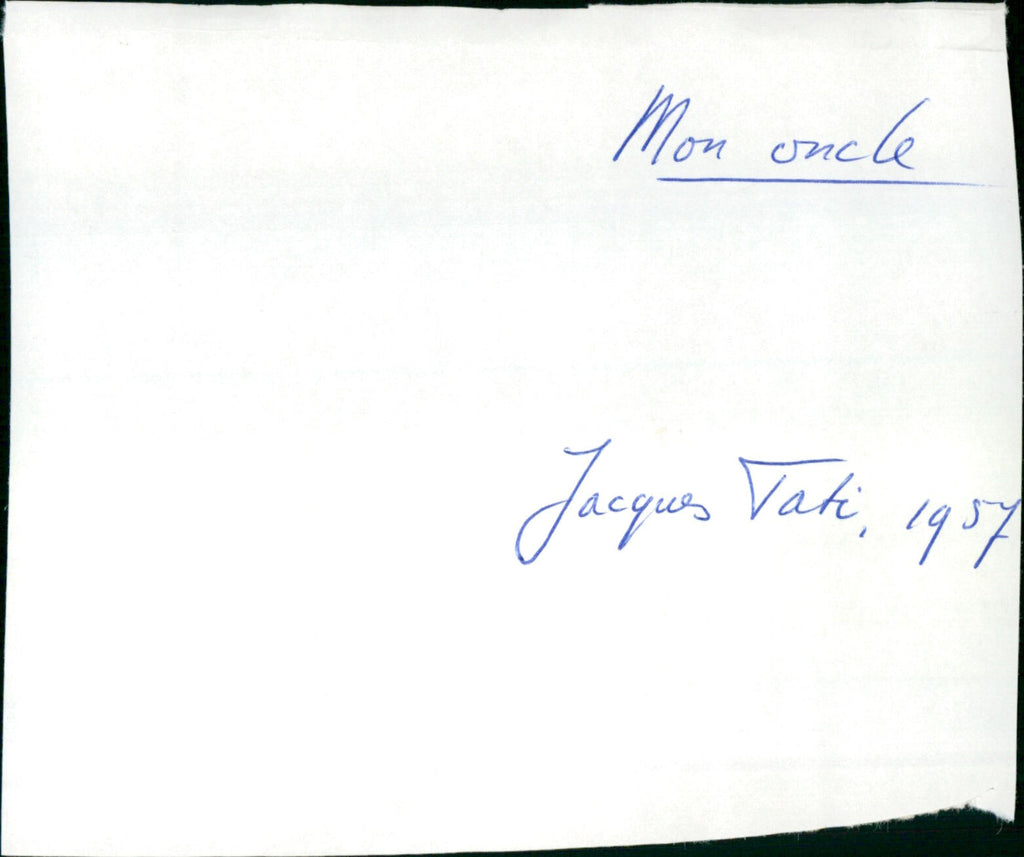 Mon oncle
Jacques Tati, 1957